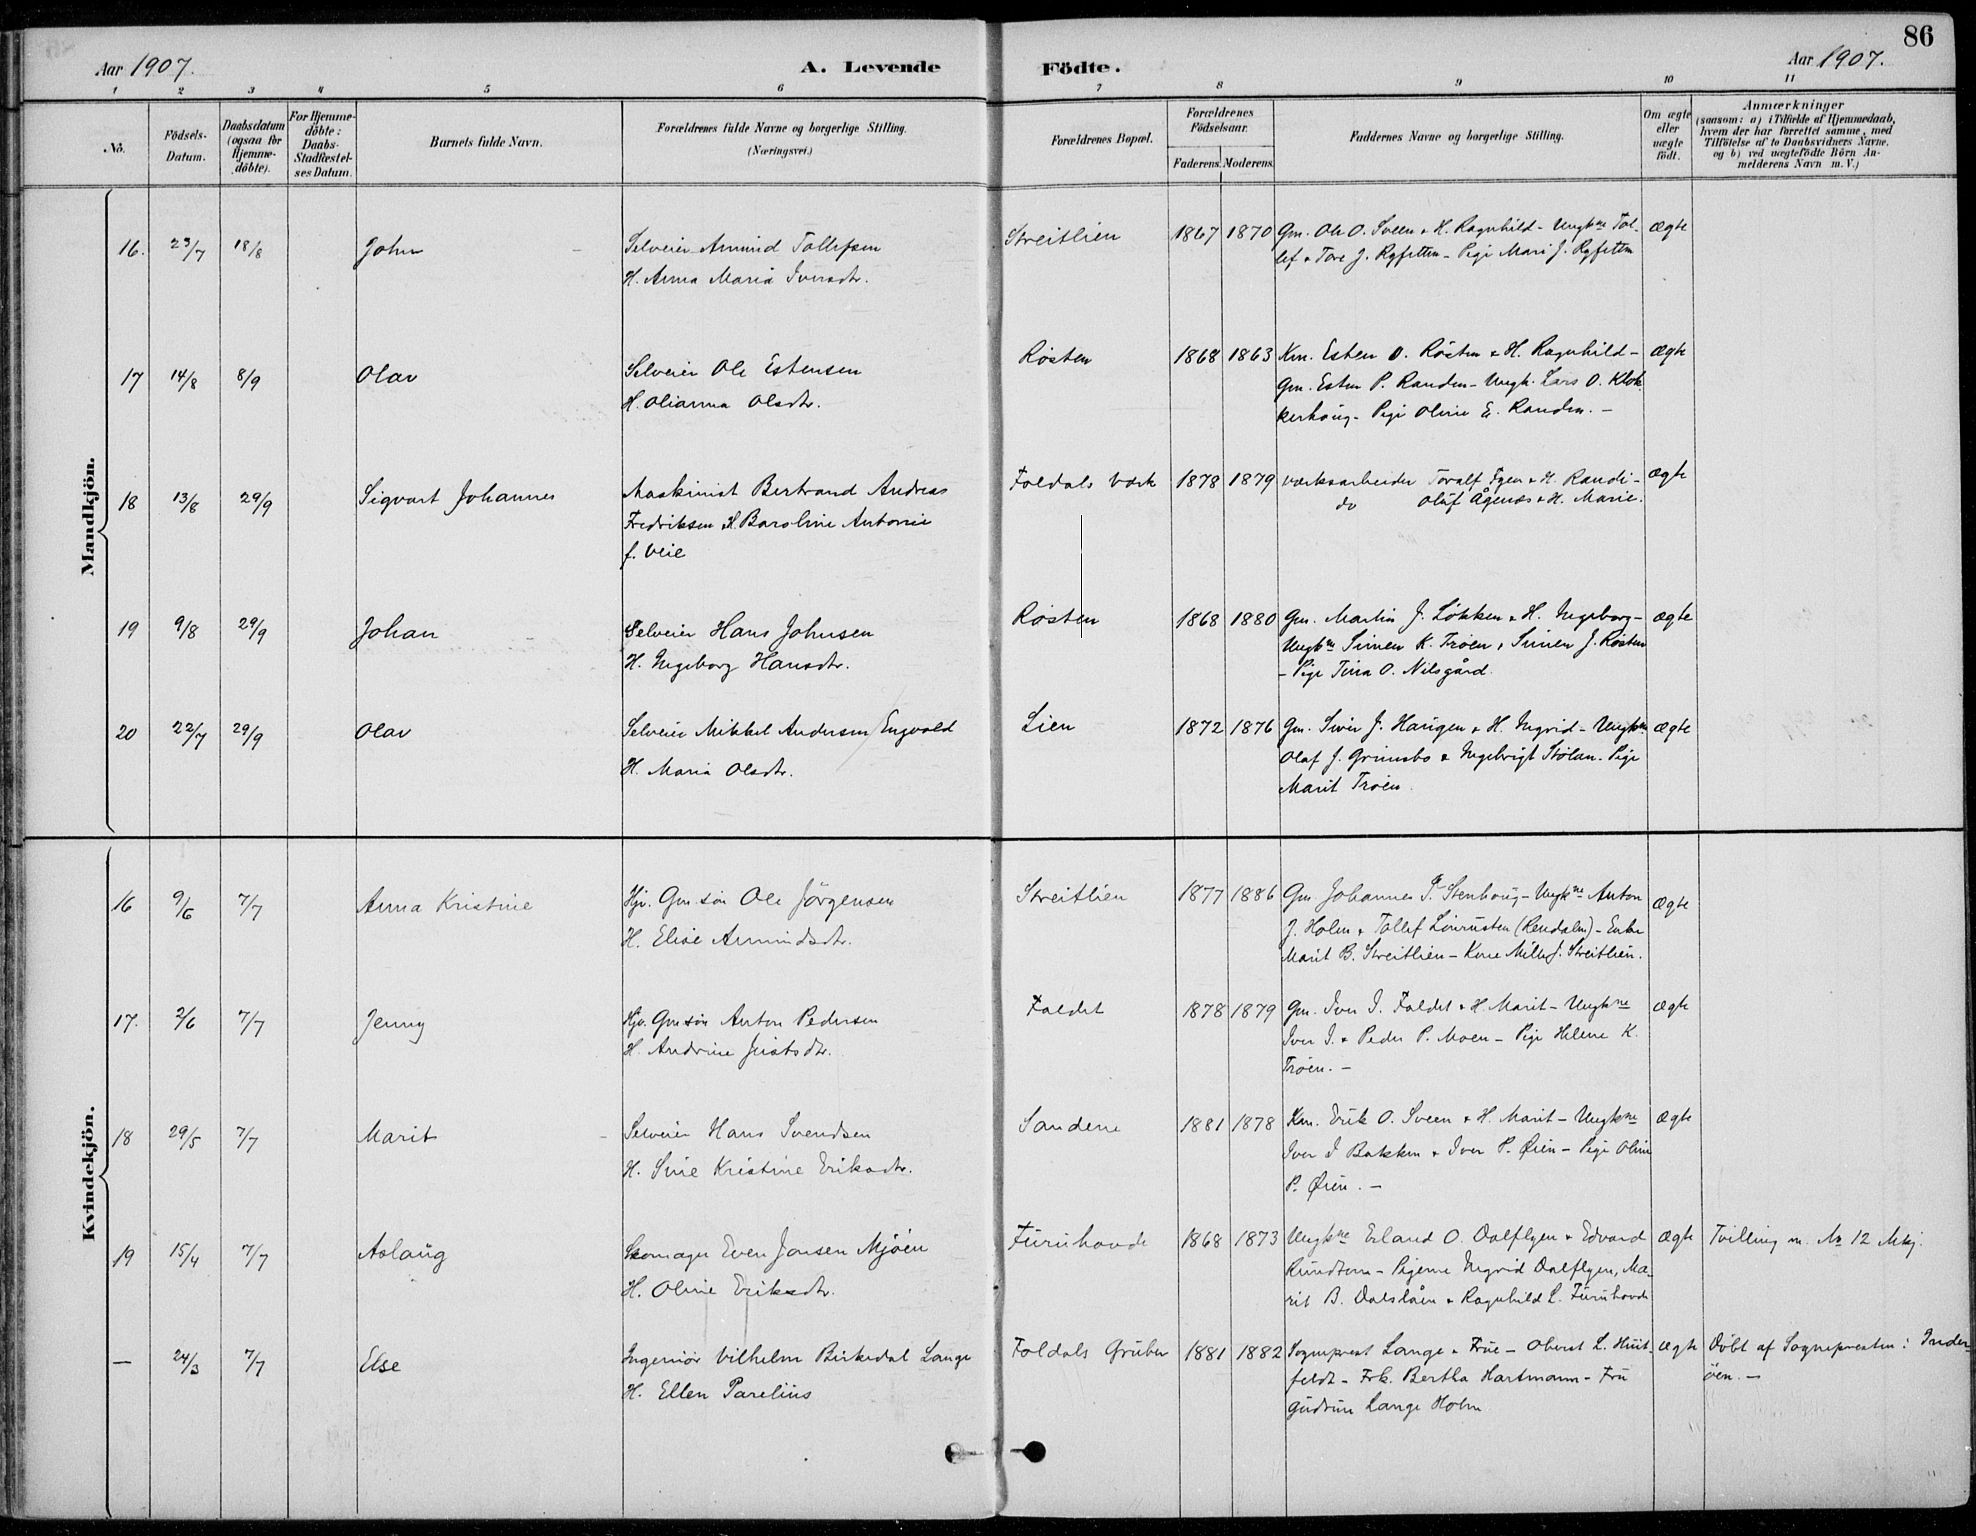 86
Aar 1907.
A. Levende Födte.
Aar 1907.
1 2 3 4 5 6 7 8 9 10 11
No.
Födsels-Datum.
Daabsdatum (ogsaa for Hjemme-döbte).
For Hjemme-döbte: Daabs-Stadfæstel-ses Datum.
Barnets fulde Navn.
Forældrenes fulde Navne og borgerlige Stilling.
(Næringsvei.)
Forældrenes Bopæl.
Forældrenes Födselsaar.
Faderens. Moderens.
Faddernes Navne og borgerlige Stilling.
Om ægte eller uægte födt.
Anmærkninger
(saasom: a) i Tilfælde af Hjemmedaab,
hvem der har forrettet samme, med
Tilföielse af to Daabsvidners Navne,
og b) ved uægtefödte Börn An-
melderens Navn m. V.)
Mandkjön.
16. 23/7 18/8 John
Selveier Amund Tollefsen
H. Anna Maria Iversdtr.
Streitlien 1867 1870
Gm. Ole O. Sveen & H. Ragnhild - Ungkne Tol-
lef & Tore J. Ryfetten - Pige Mari J. Ryfetten
ægte
17 14/8 8/9 Olav
Selveier Ole Estensen
H. Olianna Olsdtr.
Røsten 1868 1863
Km. Esten O. Røsten & H. Ragnhild -
Gm. Esten P. Randen - Ungk. Lars O. Klok-
kerhaug - Pige Oline E. Randen. -
ægte
18 13/8 29/9 Sigvart Johannes
Maskinist Bertrand Andreas
Fredriksen H. Baroline Antonie
f. Veie
Foldals Værk 1878 1879
Værksarbeider Toralf Fgen & H. Randi -
do Oluf Ågenæs & H. Marie.
ægte
19 9/8 29/9 Johan
Selveier Hans Johnsen
H. Ingeborg Hansdtr.
Røsten 1868 1880
Gm. Martin J. Løkken & H. Ingeborg -
Ungkne Simen K. Trøen, Simen J. Røsten
- Pige Tina O. Nilsgård.
ægte
20 22/7 29/9 Olav
Selveier Mikkel Andersen Engvold
H. Maria Olsdtr.
Lien 1872 1876
Gm. Siver J. Haugen & H. Ingrid - Ungkne
Olaf J. Grimsbo & Ingebrigt Stølan. Pige
Marit Trøen.
ægte
Kvindekjön.
16 9/6 7/7 Anna Kristine
Hjv. Gm.søn Ole Jörgensen
H. Elise Amundsdtr.
Streitlien 1877 1886
Gm Johannes P. Stenhaug - Ungkne Anton
J. Holen & Tollef Lönrusten (Rendalen) - Enke
Marit B. Streitlien - Kone Mille J. Streitlien.
ægte
17. 2/6 7/7 Jenny
Hjv. Gm.søn Anton Pedersen
H. Andrine Justsdtr.
Foldet 1878 1879
Gm. Iver I. Foldet & H. Marit - Ungkne
Iver I. & Peder P. Moen - Pige Helene K.
Trøen. -
ægte
18 29/5 7/7 Marit
Selveier Hans Svendsen
H. Sine Kristine Eriksdtr.
Sandene 1881 1878
Km. Erik O. Sveen & H. Marit - Ungkne
Iver I Bakken & Iver P. Øien - Pige Oline
P. Øien. -
ægte
19 15/4 7/7 Aslaug
Skomager Even Jonsen Mjøen
H. Oline Eriksdtr.
Furuhovde 1868 1873
Ungkne Erland O. Dalflyen & Edvard
Rundtom - Pigerne Ingrid Dalflyen, Ma-
rit B. Dalslåen & Ragnhild L. Furuhovde
ægte
Tvilling m. No 12 Mkj.
- 24/3 7/7 Else
Ingeniør Vilhelm Birkedal Lange
H. Ellen Parelius
Foldals Gruber 1881 1882
Sogneprest Lange & Frue - Oberst L. Huit-
feldt - Frk. Bertha Hartmann - Fru
Gudrun Lange Holm
ægte
Døbt af Sognepresten i Inder-
øen. -